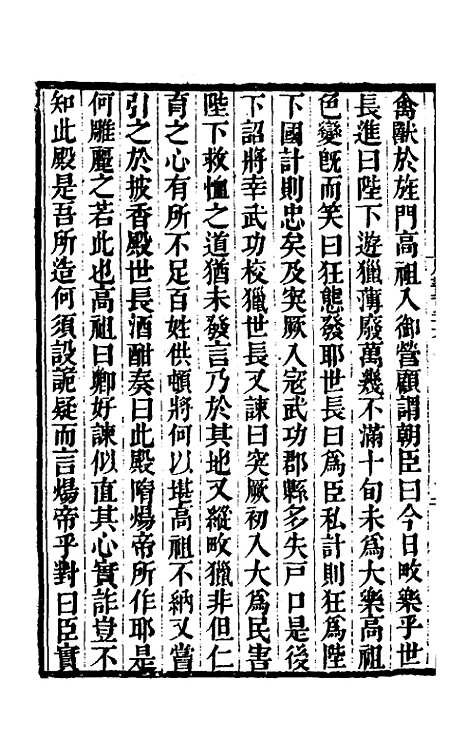 禽獸於旌門高祖入御營顧謂朝臣曰今日畋樂乎世
長進曰陛下遊獵薄廢萬幾不滿十旬未為大樂高祖
色變旣而笑曰狂態發耶世長曰為臣私計則狂為陛
下國計則忠矣及突厥入寇武功郡縣多失戸口是後
下詔將幸武功校獵世長又諫曰突厥初入大為民害
陛下救恤之道猶未發言乃於其地又縱畋獵非但仁
育之心有所不足百姓供頓將何以堪高祖不納又嘗
引之於披香殿世長酒酣奏曰此殿隋煬帝所作耶是
何雕麗之若此也高祖曰卿好諫似直其心實詐豈不
知此殿是吾所造何須設詭疑而言煬帝乎對曰臣實